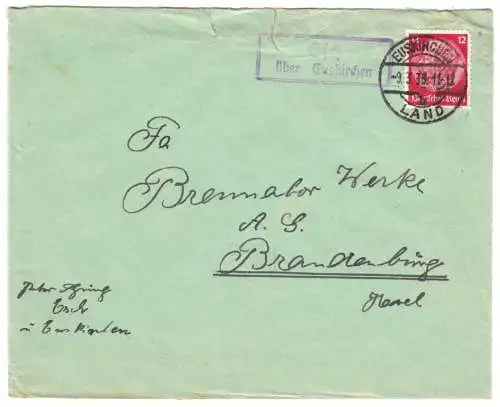 über Euskirchen
12
EUSKIRCHEN
-9.3.38.11-12
LAND
Deutsches Reich
Fa
Brennabor Werke
A. G.
Brandenburg
Havel
Peter
Esch
ü Euskirchen